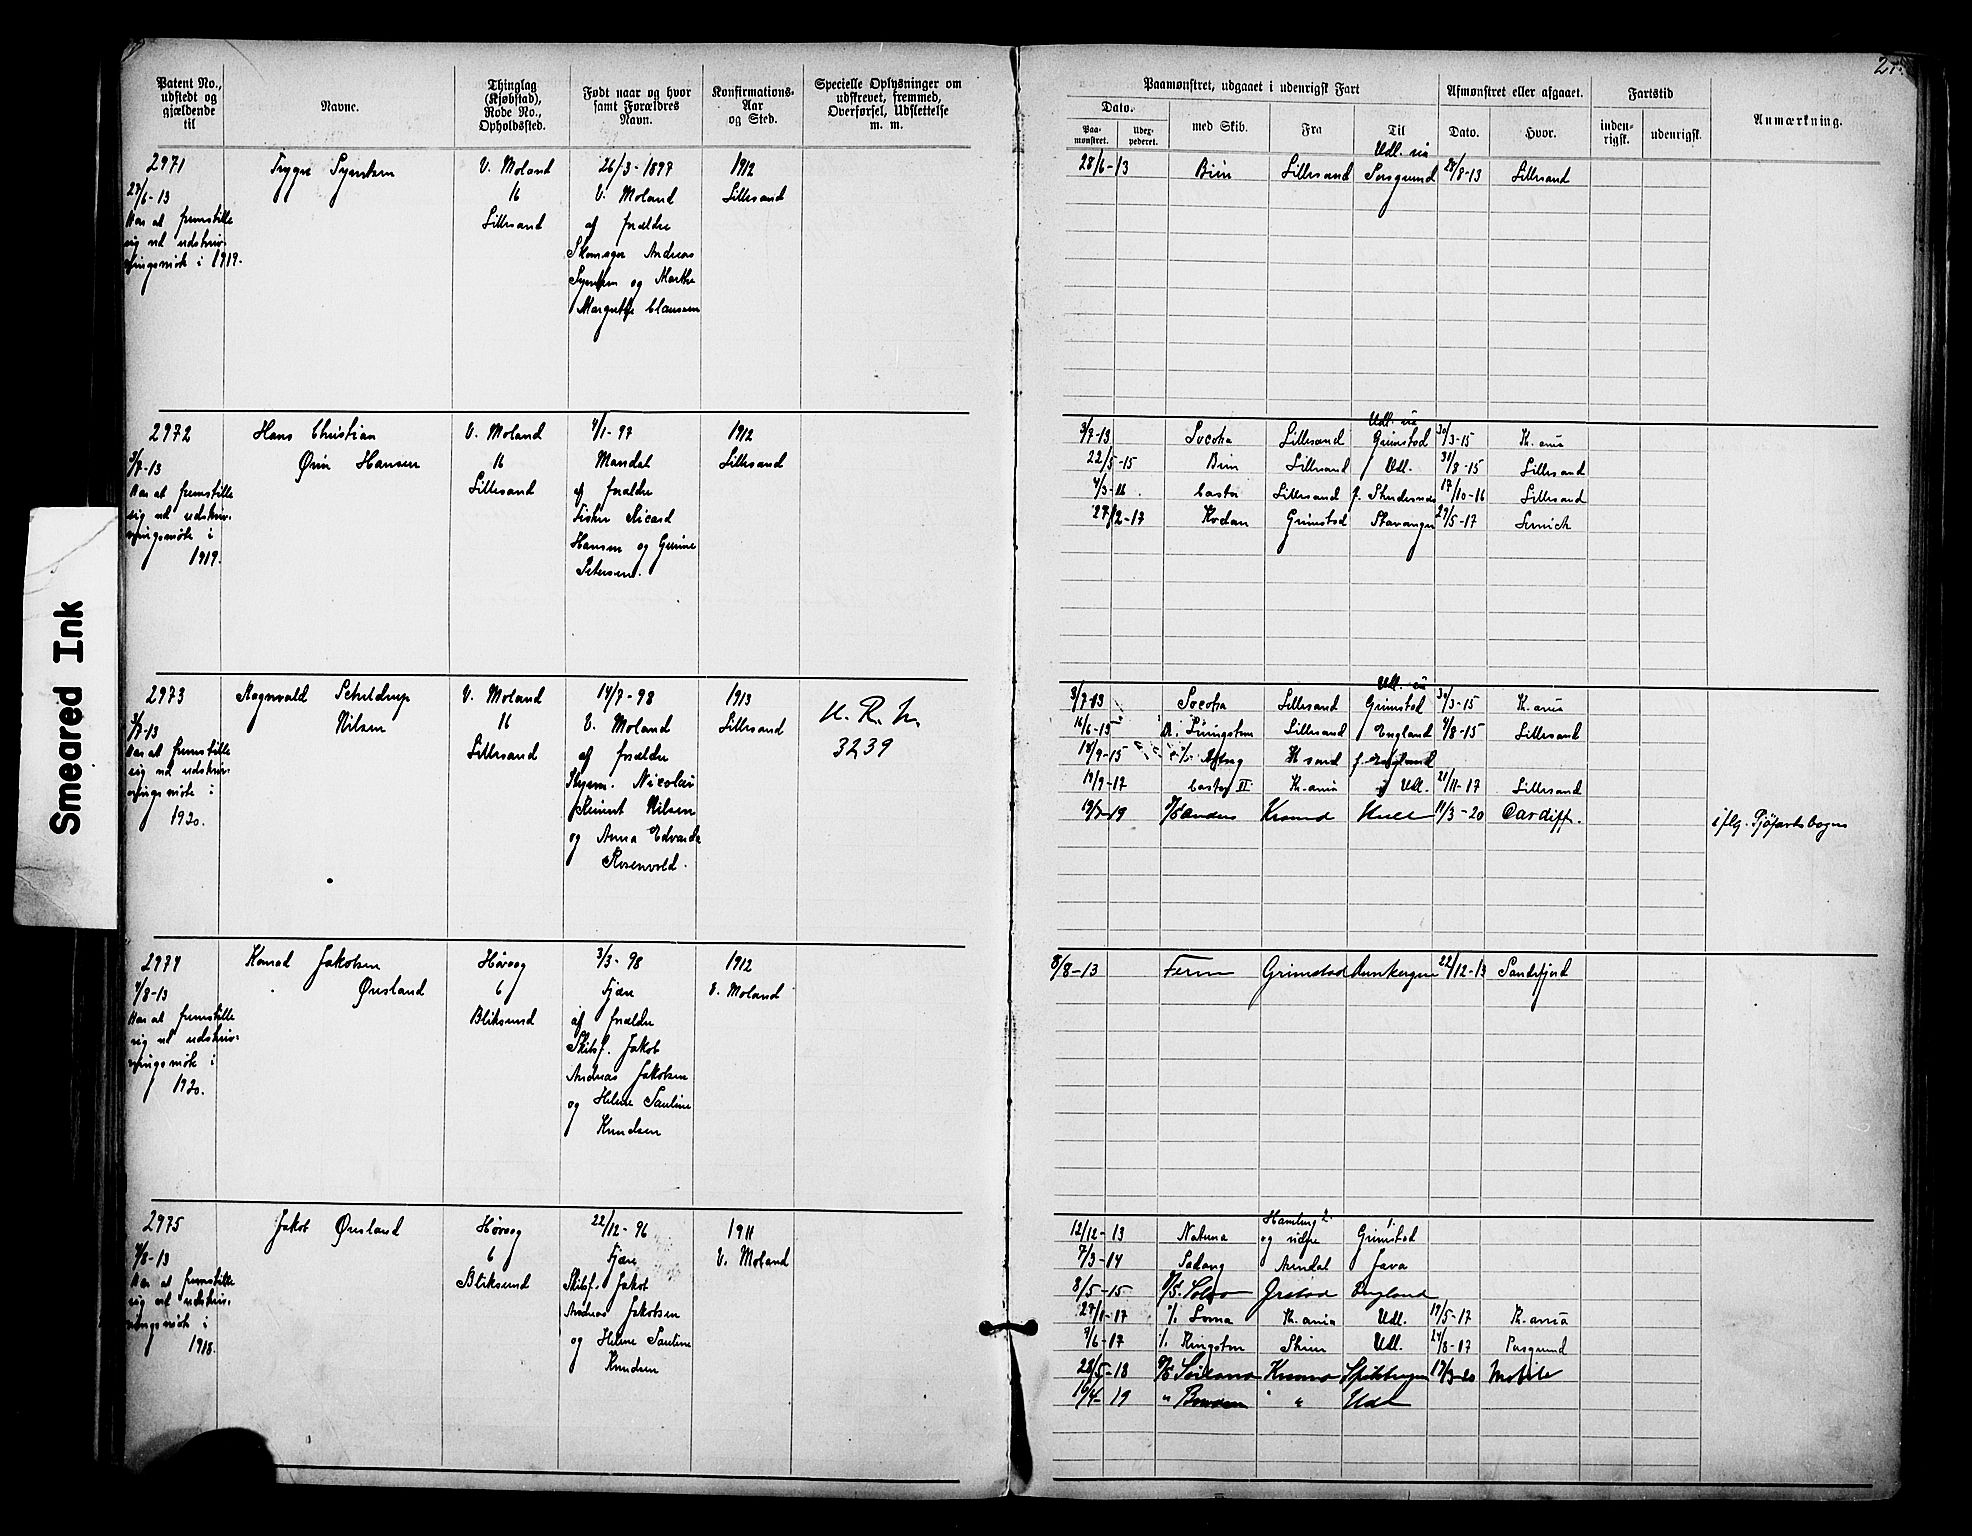 Patent No.,
udstedt og
gjældende
til
Navne.
Thinglag
(Kjøbstad),
Rode No.,
Opholdssted.
Født naar og hvor
samt Forældres
Navn.
Konfirmations-
Aar
og Sted.
Specielle Oplysninger om
udskrevet, fremmed,
Overførsel, Udslettelse
m. m.
2971
27/6-13
Har at fremstille
sig ved udskriv-
ningsmöte i 1919.
Trygve Syvertsen
V. Moland
16
Lillesand
26/3-1897
V. Moland
af forældre
Skomager Andreas
Syvertsen og Marthe
Margrethe Claussen
1912
Lillesand
2972
3/7-13
Har at fremstille
sig ved udskriv-
ningsmöte i
1919.
Hans Christian
Hansen
V. Moland
16
Lillesand
4/1-97
Mandal
af forældre
Fisker Ricard
Hansen og Gurine
Petersen.
1912
Lillesand
2973
3/7-13
Har at fremstille
sig ved udskriv-
ningsmöte i
1920.
Ragnvald Scheldrup
Nilsen
V. Moland
16
Lillesand
14/7-98
V. Moland
af forældre
Styrm. Nicolai
Reinert Nilsen
og Anna Edvarda
Rosenvold.
1913
Lillesand
3239
2974
4/8-13
Har at fremstille
sig ved udskriv-
ningsmöte i
1920.
Konrad Jakobsen
Øresland
Høvaag
6
Bliksund
3/3-98
Fjære
af forældre
Skibsf. Jakob
Andreas Jakobsen
og Helene Pauline
Knudsen
1912
V. Moland
2975
4/8-13
Har at fremstille
sig ved udskriv-
ningsmöte i
1918.
Jakob Øresland
Høvaag
6
Bliksund
22/12-96
Fjære
Skibsf. Jakob
Andreas Jakobsen
og Helene Pauline
Knudsen
1911
V. Moland
Smeared Ink
Paamønstret, udgaaet i udenrigsk Fart
Afmønstret eller afgaaet.
Fartstid
Anmærkning.
Dato.
Paa-
mønstret.
Udex-
pederet.
med Skib.
Fra
Til
Dato.
Hvor.
inden-
rigsk.
udenrigsk.
Udl. via
28/6-13 Lillesand Porsgrund 28/8-13 Lillesand
Udl. via
3/7-13 Socotra Lillesand Grimstad 30/3-15 Kr.ania
22/5-15 Lillesand Udl. 31/8-15 Lillesand
4/3-16 Castor Lillesand f. Skudesnes 17/10-16 Lillesand
27/2-17 Grimstad Stavanger 29/5-17
Udl. via
3/7-13 Socotra Lillesand Grimstad 30/3-15 Kr.ania
16/6-15 Lillesand England 4/8-15 Lillesand
18/9-15 Kr sand f. England
19/9-17 Castor II Kr.ania Udl. 21/11-17 Lillesand
Krsand 11/3-20 Cardiff.
iflg. Sjøfartsbogen
8/8-13 Grimstad 22/12-13 Sandefjord
12/12-13 Natuna Hamburg 2. 1.
og videre Grimstad
7/3-14 Padang Arendal Java
8/5-15 England
27/1-17 Kr.ania Udl. 19/5-17 Kr.ania
9/6-17 Ringstom Skien Udl. 24/8-17 Porsgrund
28/5-18 19/3-20 Mobile
19 " " Udl